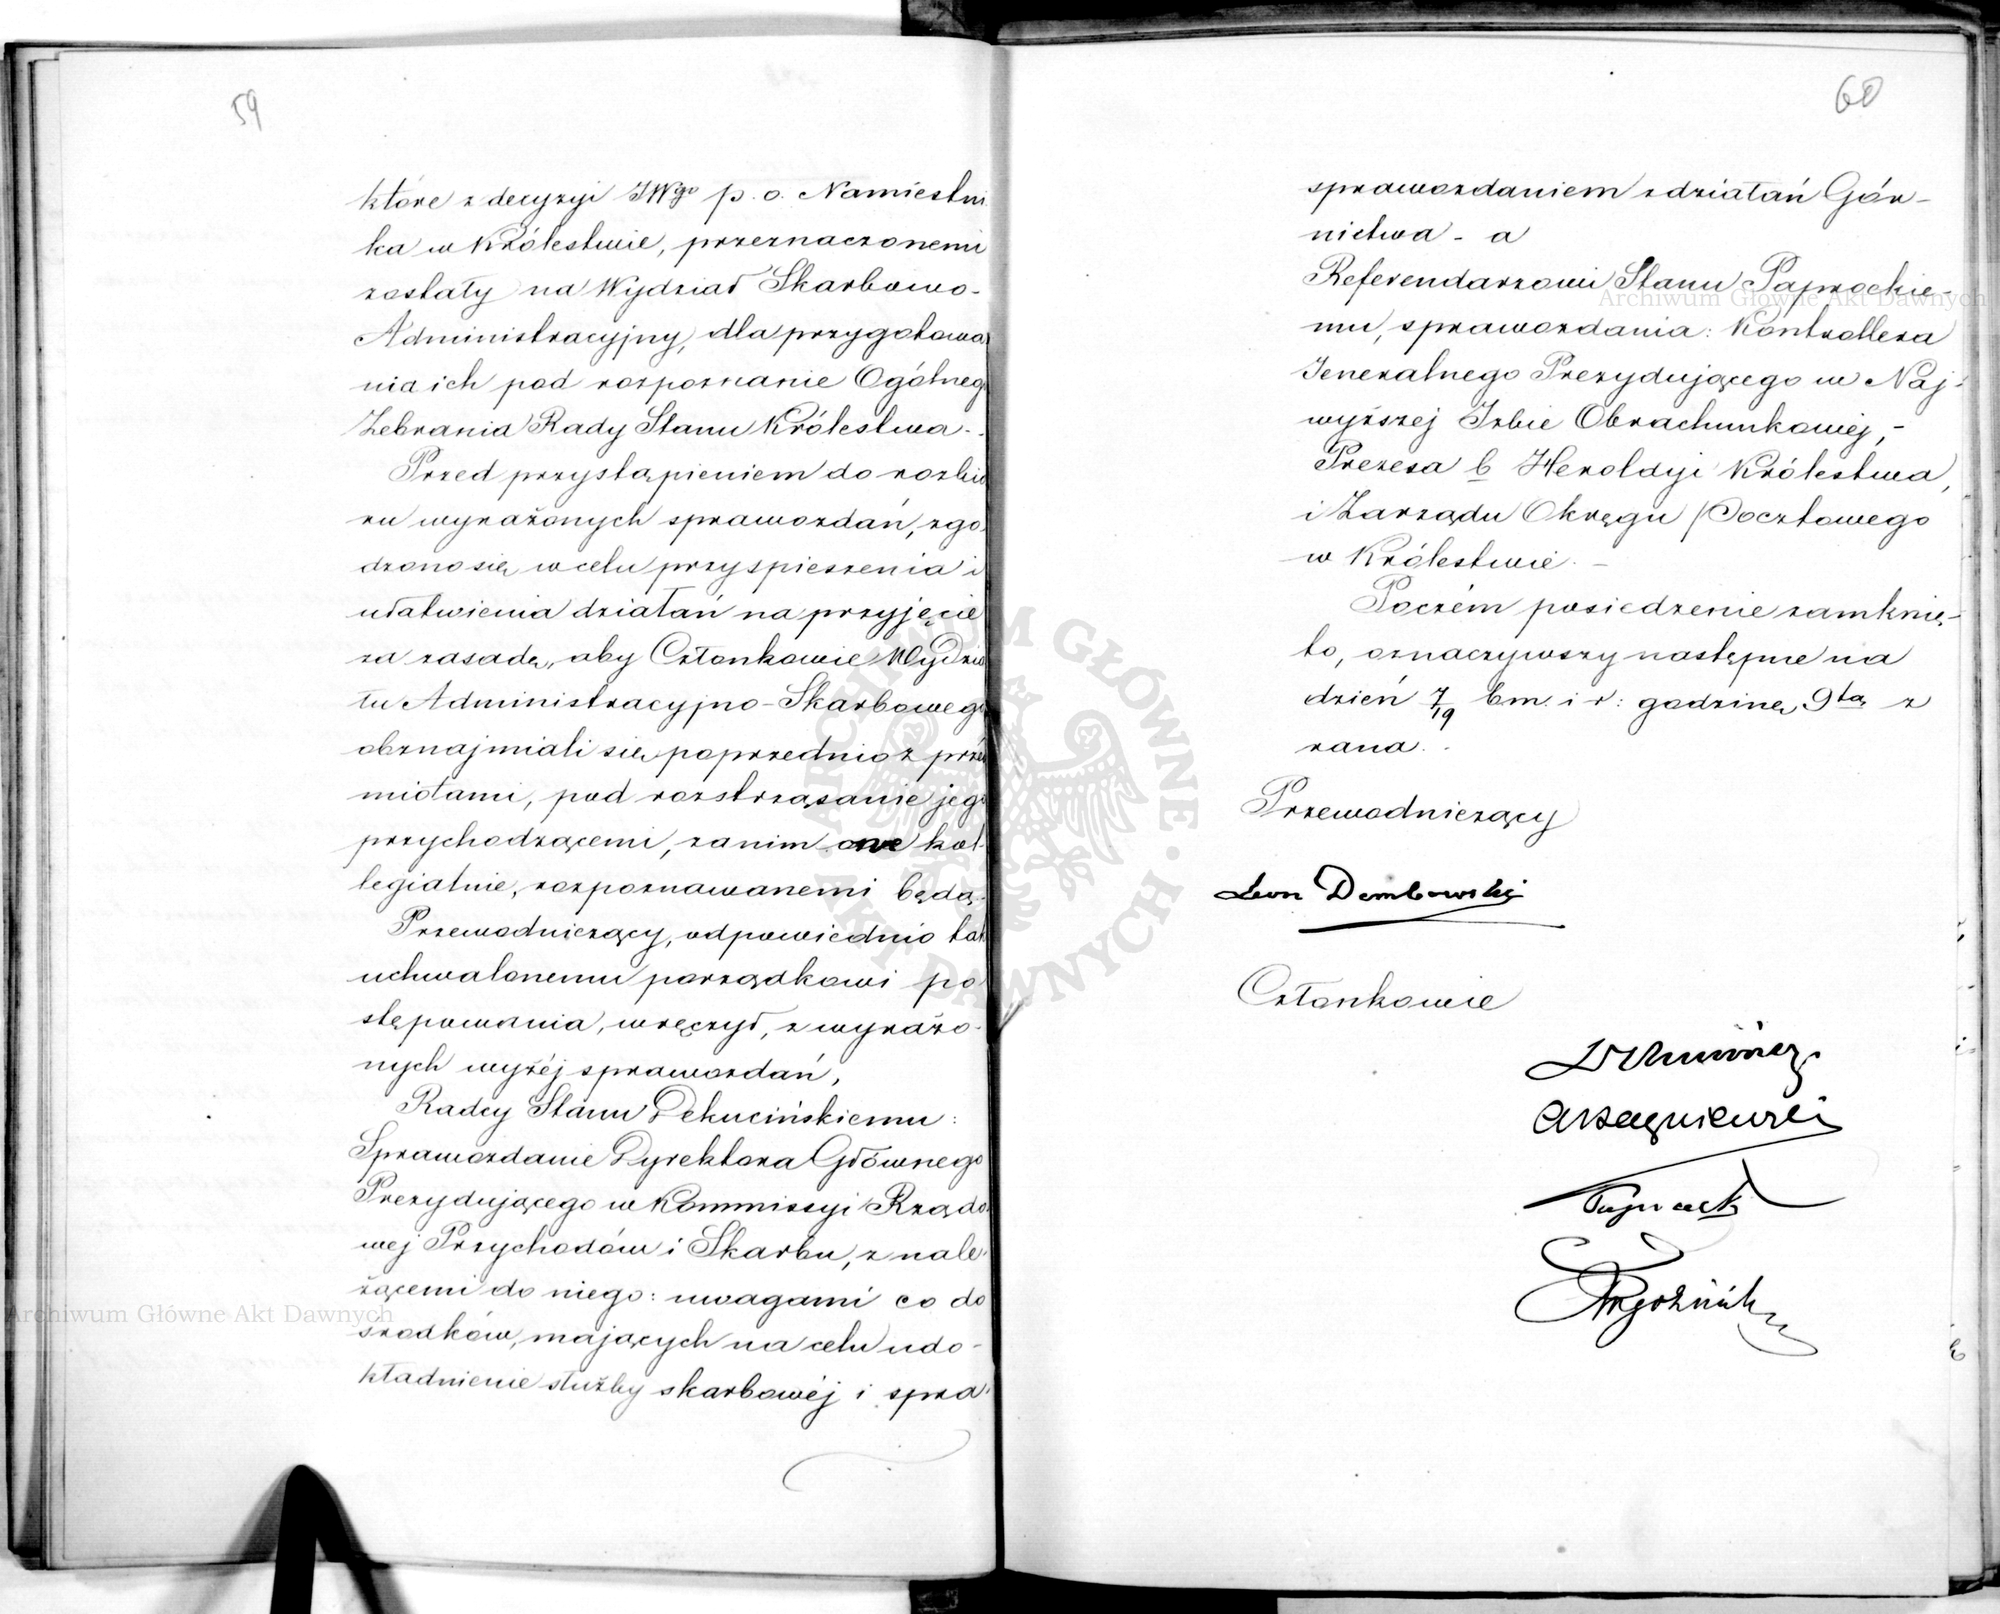 59
które z decyzyi JWgo p. o. Namiestni
ka w Królestwie, przeznaczonemi
zostały na Wydział Skarbowo-
Administracyjny, dla przygotowa
nia ich pod rozpoznanie Ogólneg
Zebrania Rady Stanu Królestwa.
Przed przystąpieniem do rozbio
ru wyrażonych sprawozdań, zgo
dzono się w celu przyspieszenia i
ułatwienia działań na przyjęcie
za zasadę, aby Członkowie Wydzia
łu Administracyjno-Skarbowego
obznajmiali się poprzednio z przed
miotami, pod rozstrząsanie jego
przychodzącemi, zanim one kol
legialnie, rozpoznawanemi będą.
Przewodniczący, odpowiednio tak
uchwalonemu porządkowi po
stępowania, wręczył, z wyrażo-
nych wyżéj sprawozdań,
Radcy Stanu Dekucińskiemu:
Sprawozdanie Dyrektora Głównego
Prezydującego w Kommissyi Rządo
wej Przychodów i Skarbu, z nale-
żącemi do niego: uwagami co do
srodków, mających na celu udo-
kładnienie służby skarbowéj i spra
60
sprawozdaniem z działań Gór-
nictwa - a
Referendarzowi Stanu Paprockie-
mu, sprawozdania: Kontrollera
Jeneralnego Prezydującego w Naj-
wyższej Izbie Obrachunkowej, -
Prezesa b Heroldyi Królestwa,
i Zarządu Okręgu Pocztowego
w Królestwie. -
Poczém posiedzenie zamknię-
to, oznaczywszy następne na
dzień 7/19 bm. i r: godzinę 9tą z
rana.
Przewodniczący
Leon Dembowski
Członkowie
Paprocki
Archiwum Główne Akt Dawnych
Archiwum Główne Akt Dawnych
ARCHIWUM GŁÓWNE AKT DAWNYCH